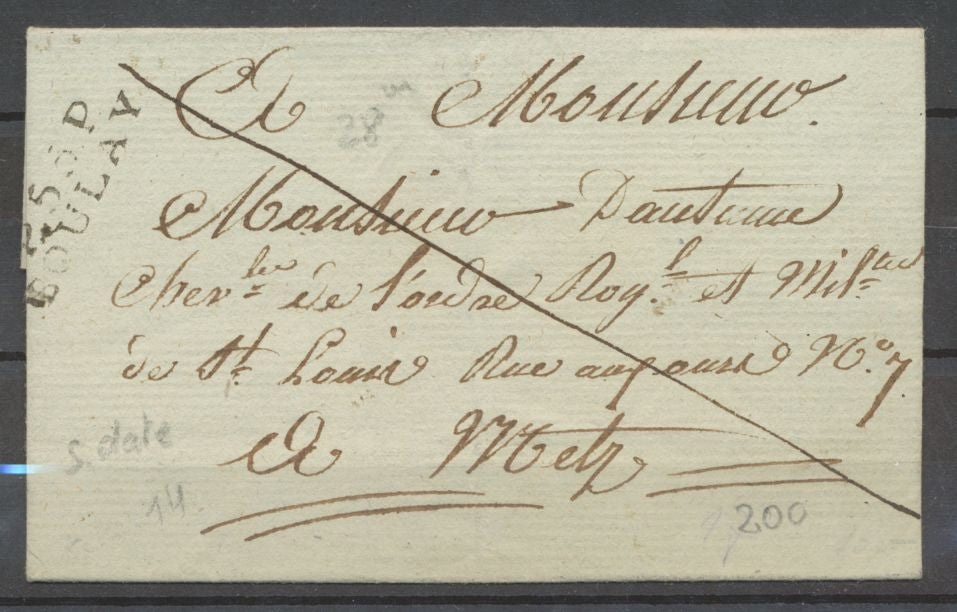 P.55.P
BOULAY
28
A Monsieur.
Monsieur Dautume
Chev.lier de l'ordre Roy.l et Mil.tre
de St. Louis Rue aux ours N.o 7
A Metz
S. date
14
200